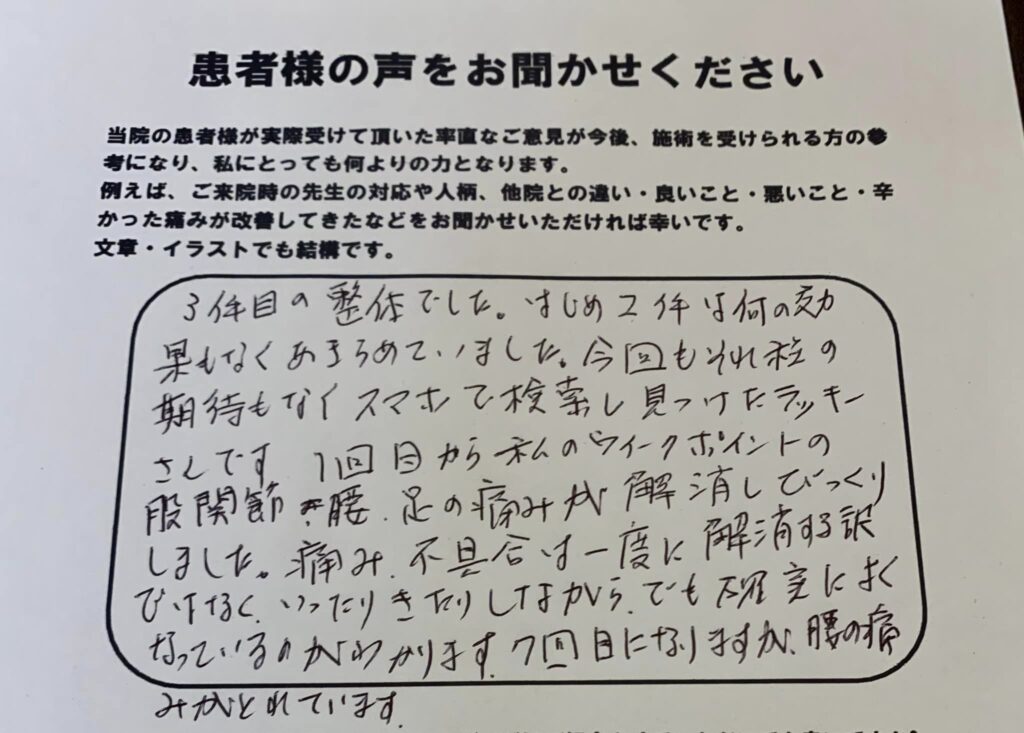 患者様の声をお聞かせください
当院の患者様が実際受けて頂いた率直なご意見が今後、施術を受けられる方の参
考になり、私にとっても何よりの力となります。
例えば、ご来院時の先生の対応や人柄、他院との違い・良いこと・悪いこと・辛
かった痛みが改善してきたなどをお聞かせいただければ幸いです。
文章・イラストでも結構です。
3件目の整体でした。はじめ2件は何の効
果もなくあきらめていました。今回もそれ程の
期待もなくスマホで検索し見つけたラッキー
さんです。1回目から私のウィークポイントの
股関節、腰、足の痛みが解消しびっくり
しました。痛み、不具合は一度に解消する訳
ではなく、いったりきたりしながら、でも確実によく
なっているのがわかります。7回目になりますが、腰の痛
みがとれています。